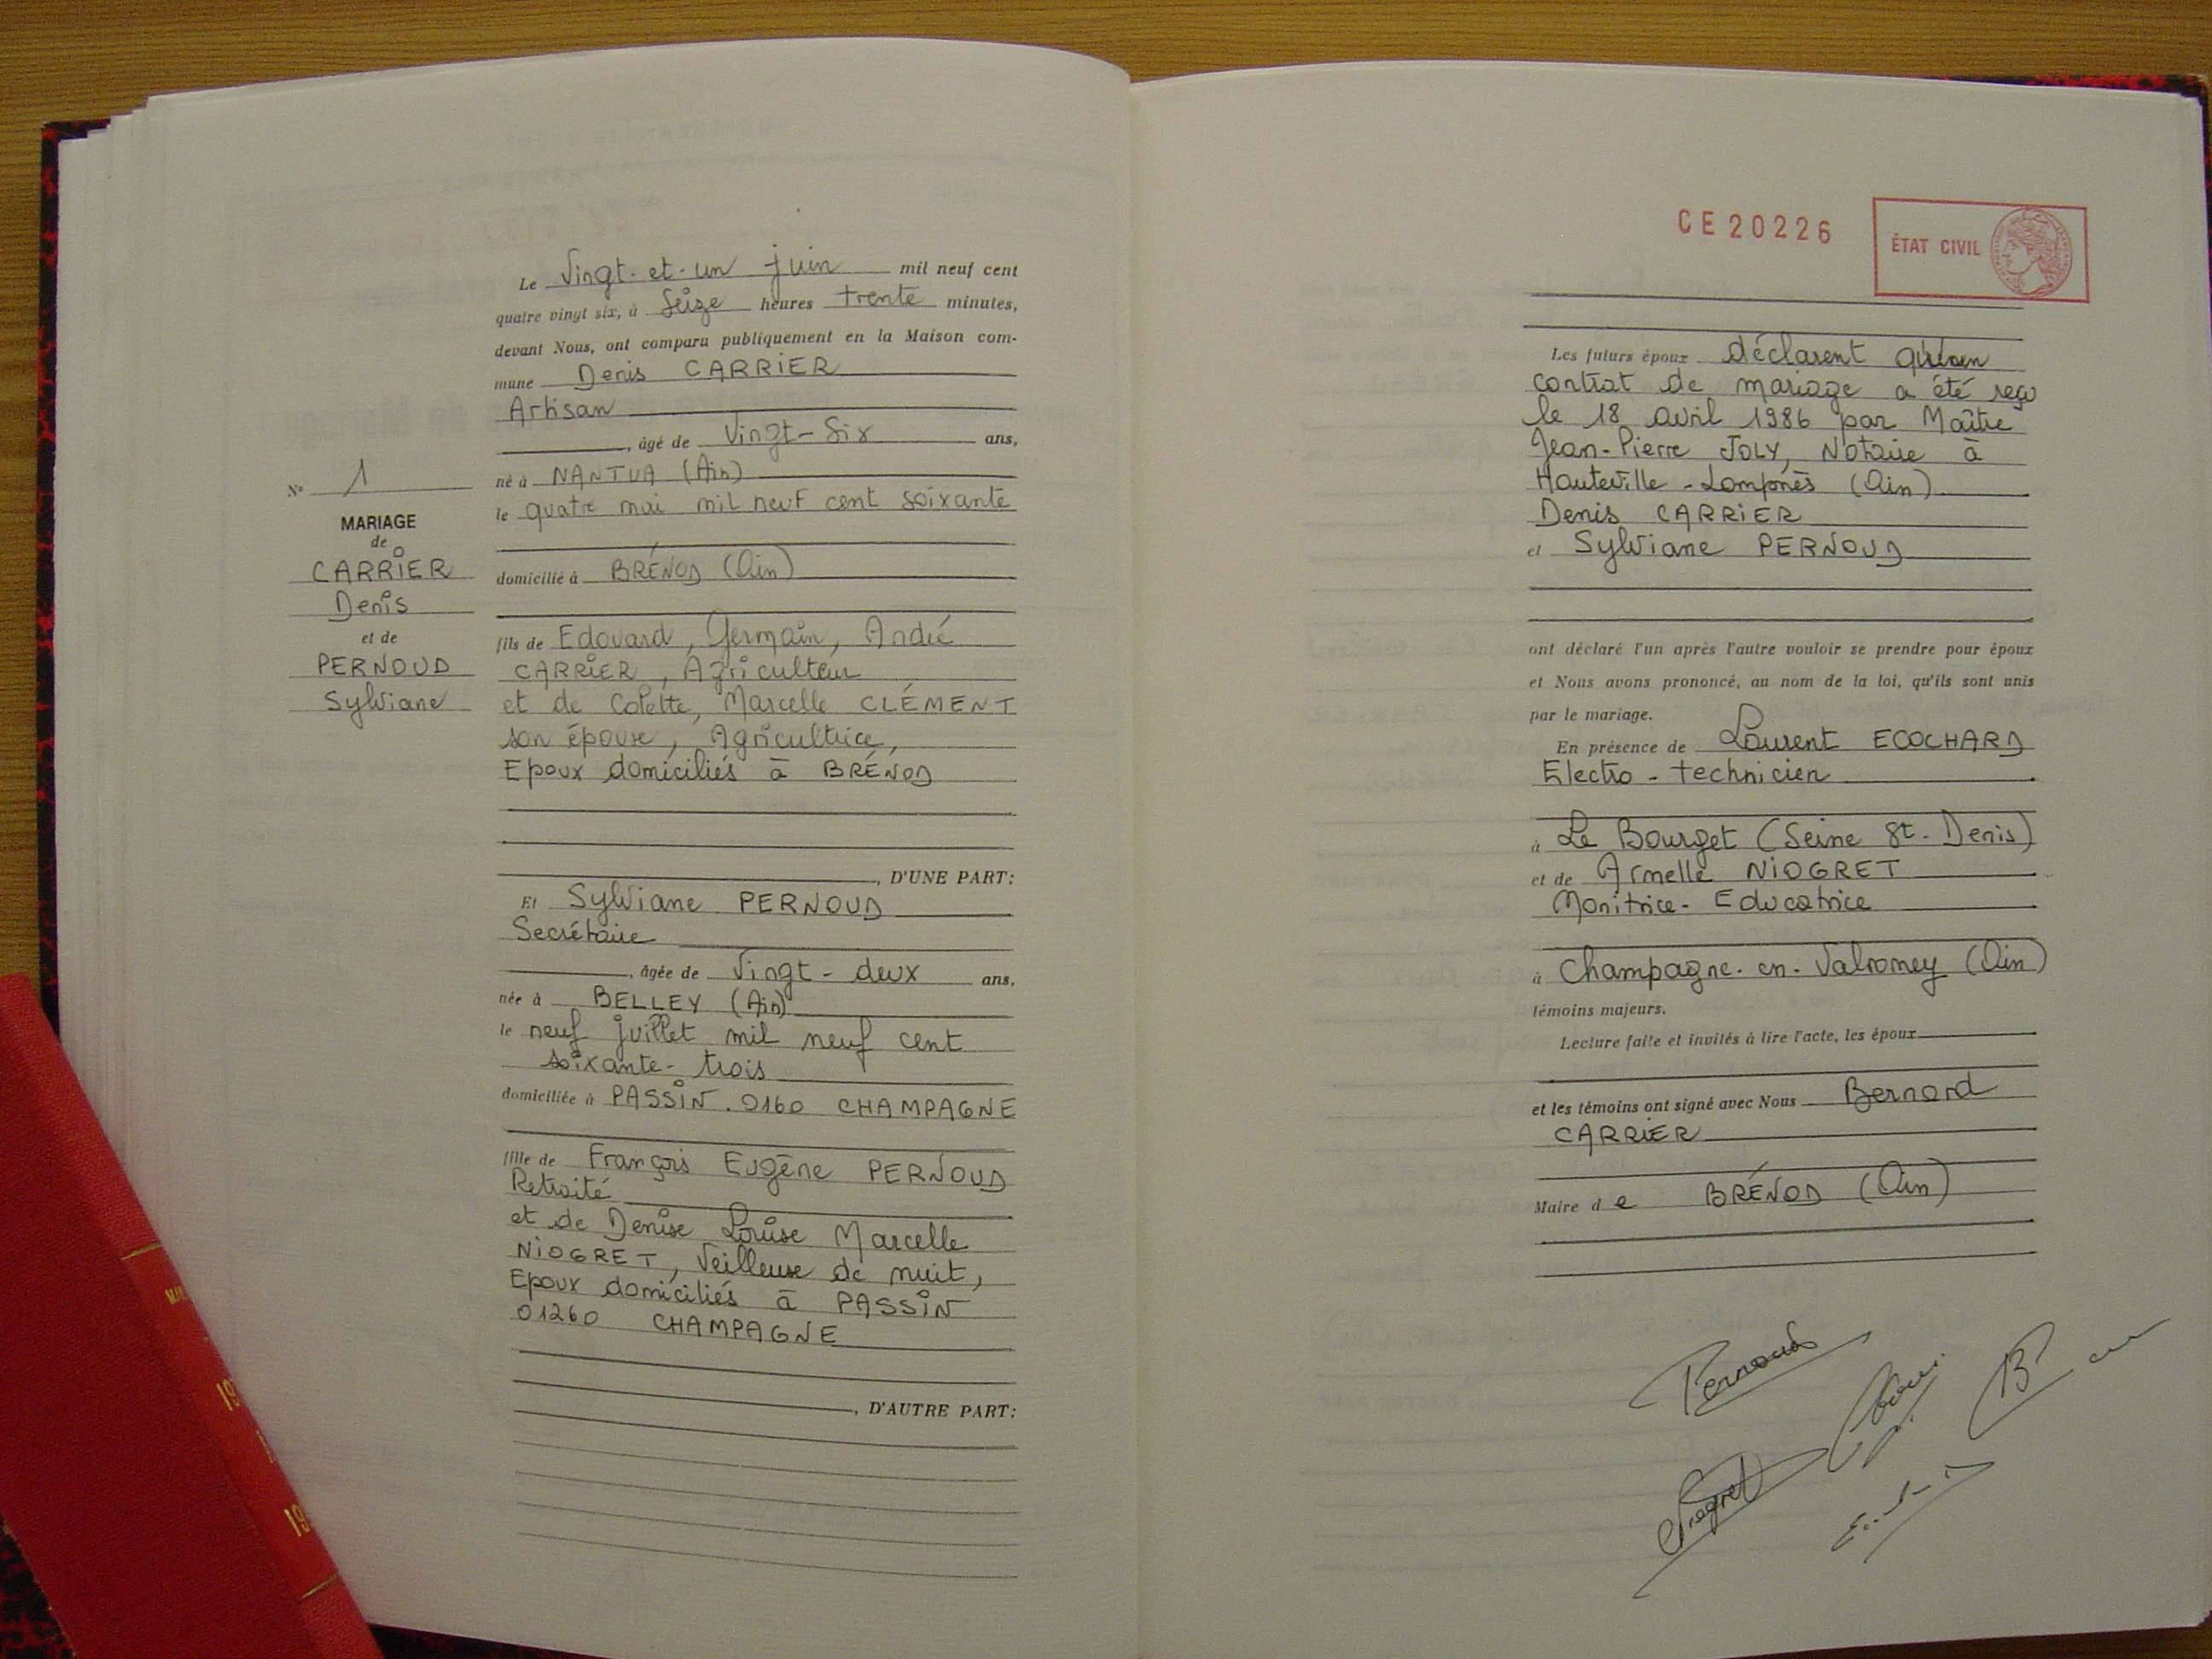 Nº 1
MARIAGE
de
CARRIER
Denis
et de
PERNOUD
Sylviane
Le Vingt-et-un juin mil neuf cent
quatre vingt six, à Seize heures trente minutes,
devant Nous, ont comparu publiquement en la Maison com-
mune Denis CARRIER
Artisan
, âgé de Vingt-Six ans,
né à NANTUA (Ain)
le quatre mai mil neuf cent soixante
domicilié à BRÉNOD (Ain)
fils de Edouard, Germain, André
CARRIER, Agriculteur
et de Colette, Marcelle CLÉMENT
son épouse, Agricultrice,
Epoux domiciliés à BRÉNOD
, D'UNE PART:
Et Sylviane PERNOUD
Secrétaire
, âgée de Vingt-deux ans,
née à BELLEY (Ain)
le neuf juillet mil neuf cent
soixante-trois
domiciliée à PASSIN. 0160 CHAMPAGNE
fille de François Eugène PERNOUD
Retraité
et de Denise Louise Marcelle
NIOGRET, Veilleuse de nuit,
Epoux domiciliés à PASSIN
01260 CHAMPAGNE
, D'AUTRE PART:
CE 20226
ÉTAT CIVIL
Les futurs époux déclarent qu'un
contrat de mariage a été reçu
le 18 avril 1986 par Maître
Jean-Pierre JOLY, Notaire à
Hauteville-Lompnès (Ain)
Denis CARRIER
et Sylviane PERNOUD
ont déclaré l'un après l'autre vouloir se prendre pour époux
et Nous avons prononcé, au nom de la loi, qu'ils sont unis
par le mariage.
En présence de Laurent ECOCHARD
Electro-technicien
à Le Bourget (Seine St-Denis)
et de Armelle NIOGRET
Monitrice-Educatrice
à Champagne-en-Valromey (Ain)
témoins majeurs.
Lecture faite et invités à lire l'acte, les époux
et les témoins ont signé avec Nous Bernard
CARRIER
Maire de BRÉNOD (Ain)
Pernoud
Niogret
19
19